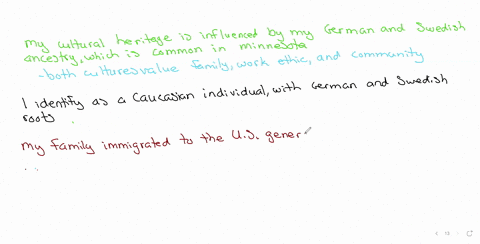 my cultural heritage is influenced by my German and Swedish
ancestry, which is common in minnesota
-both cultures value family, work ethic, and community
I identify as a Caucasian individual, with German and Swedish
roots.
my family immigrated to the U.S. gener